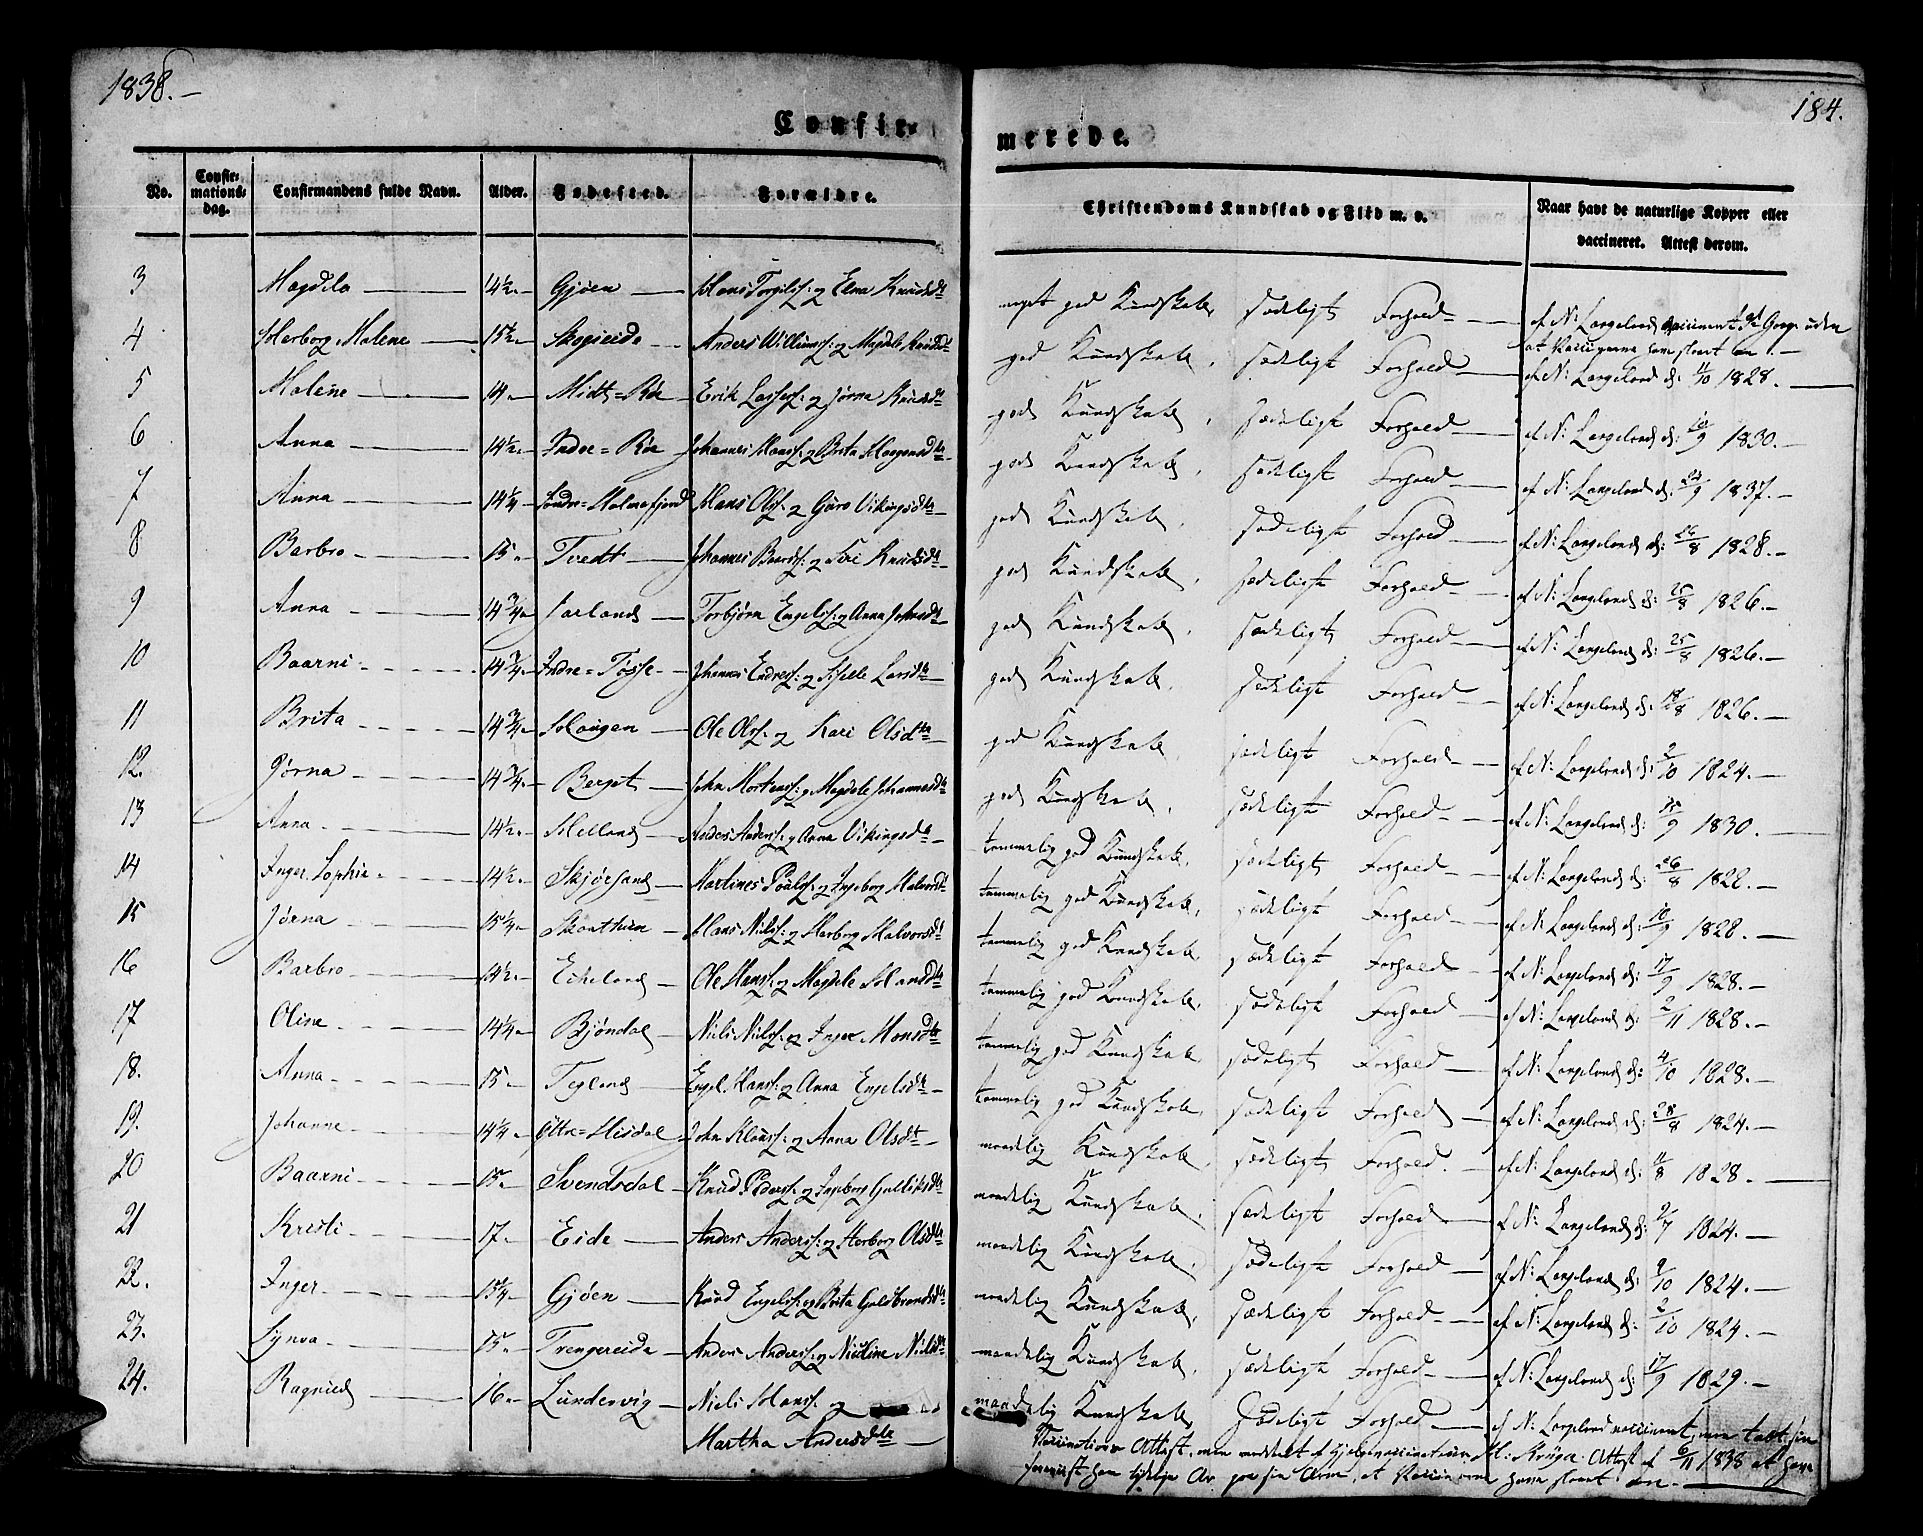 1838.
184.
Confirmerede.
No.
Confirmationsdag.
Confirmandens fulde Navn.
Alder.
Fødested.
Forældre.
Christendoms Kundskab og Flid m. v.
Naar havt de naturlige Kopper eller vaccineret. Attest derom.
3 Magdela 14½ Gjøen Hans Torgilss: og Elna Knudsd. meget god Kundskab, sædeligt Forhold af N: Langeland vaccineret Gange uden at Vaccinerne have slaaet an.
4 Herborg Malene 15½ Skogseide Anders Willumss: og Magdele Knudsd. god Kundskab, sædeligt Forhold af N: Langeland d: 11/10 1828.
5 Malene 14 Midt-Røe Erik Larsess: og Jørna Knudsd. god Kundskab, sædeligt Forhold af N: Langeland d: 10/9 1830.
6 Anna 14½ Indre-Røe Johannes Hanss: og Brita Mogensd. god Kundskab, sædeligt Forhold af N: Langeland d: 24/9 1837.
7 Anna 14¼ Søndre-Holmefjord Hans Olss: og Guro Vikingsd. god Kundskab, sædeligt Forhold af N: Langeland d: 26/8 1828.
8 Barbro 15 Tvedt Johannes Baardss: og Siri Knudsd. god Kundskab, sædeligt Forhold af N: Langeland d: 25/8 1826.
9 Anna 14¾ Jarland Torbjørn Engelss: og Anna Johnsd. god Kundskab, sædeligt Forhold af N: Langeland d: 25/8 1826.
10 Baarni 14¾ Indre-Tøsse Johannes Endress: og Sisele Larsd. god Kundskab, sædeligt Forhold af N: Langeland d: 18/8 1826.
11 Brita 14¾ Hougen Ole Olss: og Kari Olsd. god Kundskab, sædeligt Forhold af N: Langeland d: 2/10 1824.
12. Jørna 14¾ Berget John Mortenss: og Magdele Johannesd. god Kundskab, sædeligt Forhold af N: Langeland d: 15/9 1830.
13 Anna 14½ Helland Anders Anderss: og Anna Vikingsd. temmelig god Kundskab, sædeligt Forhold af N: Langeland d: 26/8 1822.
14 Inger Sophie 14½ Skjørsand Martines Poulss: og Ingeborg Halvorsd. temmelig god Kundskab, sædeligt Forhold af N: Langeland d: 10/9 1828.
15 Jørna 15¼ Skaathun Hans Nielss: og Herborg Halvorsd. temmelig god Kundskab, sædeligt Forhold af N: Langeland d: 17/9 1828.
16 Barbro 14½ Eikeland Ole Hanss: og Magdele temmelig god Kundskab, sædeligt Forhold af N: Langeland d: 2/11 1828.
17 Oline 14¼ Bjøndal Niels Nielss: og Inger Monsd. temmelig god Kundskab, sædeligt Forhold af N: Langeland d: 4/10 1828.
18. Anna 15 Tegland Engel Hanss: og Anna Engelsd. temmelig god Kundskab, sædeligt Forhold af N: Langeland d: 28/8 1824.
19. Johanne 14¼ Øttre-Hisdal John Klauss: og Anna Olsd. maadelig Kundskab, sædeligt Forhold. af N: Langeland d: 11/8 1828.
20 Baarni 15 Svendsdal Knud Pederss: og Ingeborg Gulliksd. maadelig Kundskab, sædeligt Forhold af N: Langeland d: 2/7 1824.
21 Kristi 17 Eide Anders Anderss: og Herborg Olsd. maadelig Kundskab, sædeligt Forhold af N: Langeland d: 2/10 1824.
22. Inger 15¼ Gjøen Knud Engelss: og Brita Guldbrandsd. maadelig Kundskab, sædeligt Forhold af N: Langeland d: 2/10 1824.
23. Synva 15 Trengereide Anders Anderss: og Nicoline Nielsd. maadelig Kundskab, sædeligt Forhold af N: Langeland d: 17/9 1829.
24. Ragnild 16 Lundervig Niels Hanss. og Martha Andersd. maadelig Kundskab, sædeligt Forhold af N: Langeland vaccineret, men tabt sin
Vaccinations Attest, men meddelt af Hjelpevaccinateur H: Krüger Attest af 6/11 1838 at have
foreviist ham tydelige Ar paa sin Arm, at Vaccinerne have slaaet an.